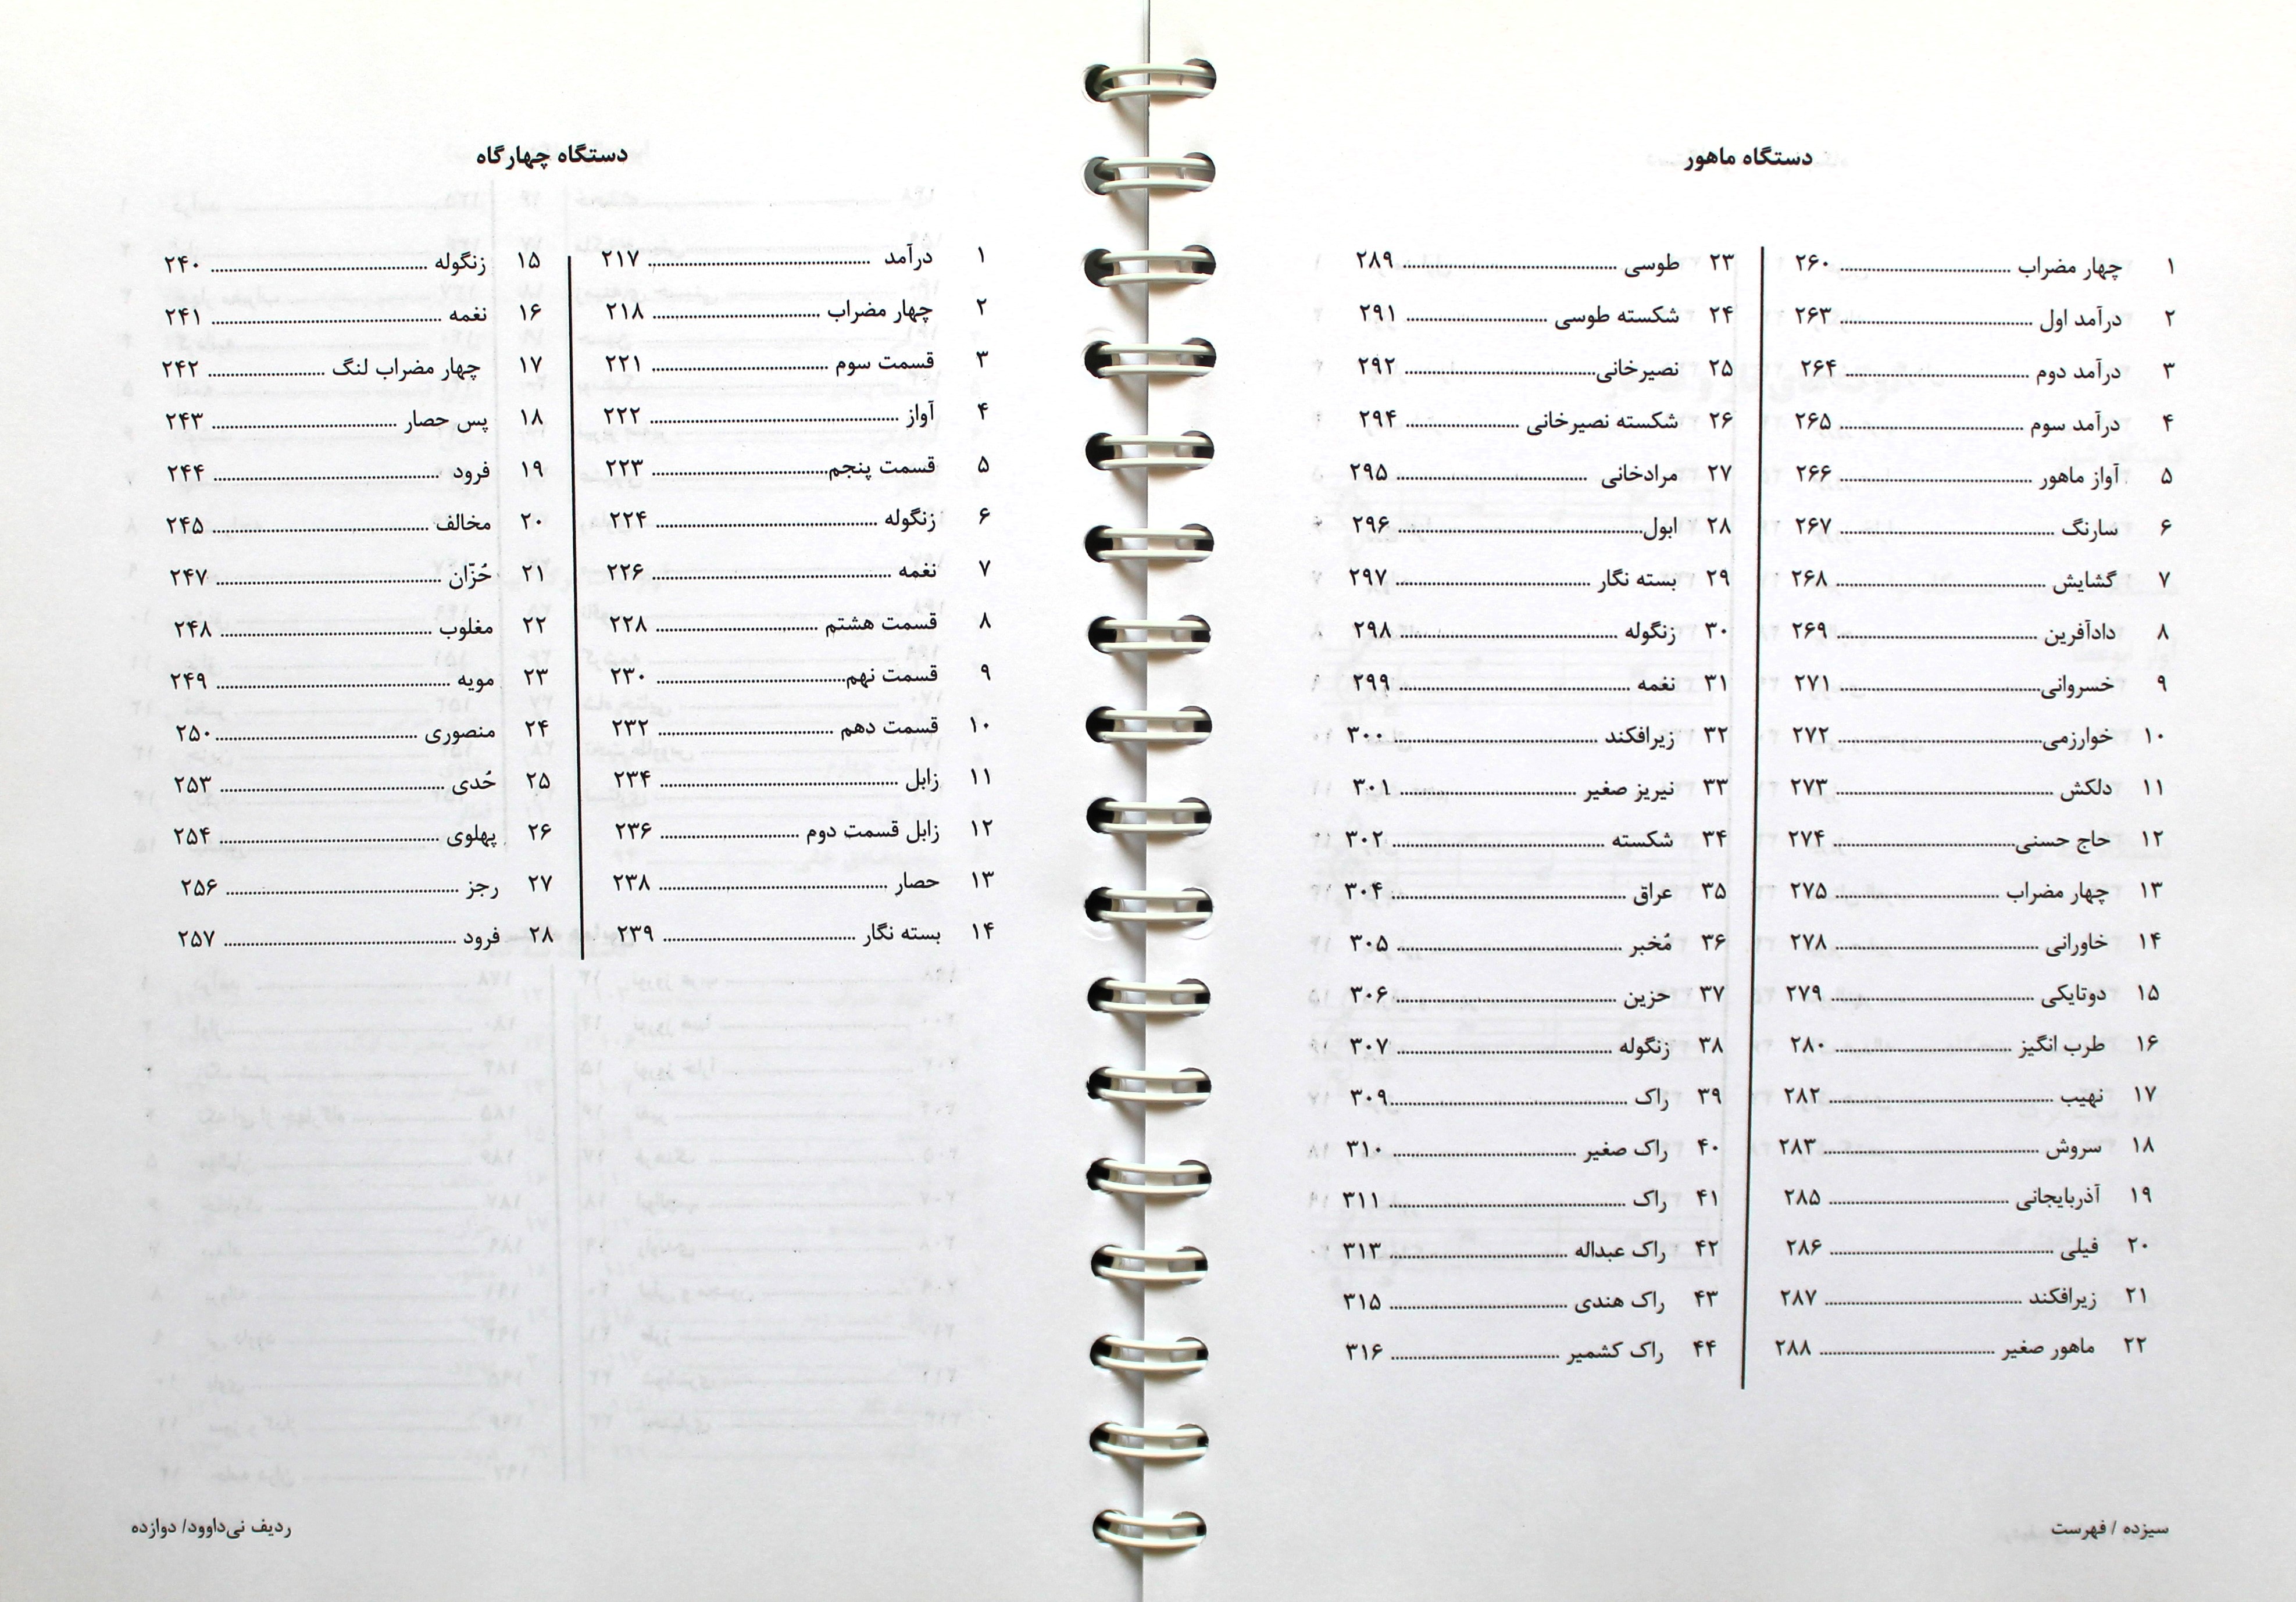 دستگاه ماهور
۱ چهار مضراب ........ ۲۶۰
۲ درآمد اول ........ ۲۶۳
۳ درآمد دوم ........ ۲۶۴
۴ درآمد سوم ........ ۲۶۵
۵ آواز ماهور ........ ۲۶۶
۶ سارنگ ........ ۲۶۷
۷ گشایش ........ ۲۶۸
۸ دادآفرین ........ ۲۶۹
۹ خسروانی ........ ۲۷۱
۱۰ خوارزمی ........ ۲۷۲
۱۱ دلکش ........ ۲۷۳
۱۲ حاج حسنی ........ ۲۷۴
۱۳ چهار مضراب ........ ۲۷۵
۱۴ خاورانی ........ ۲۷۸
۱۵ دوتایکی ........ ۲۷۹
۱۶ طرب انگیز ........ ۲۸۰
۱۷ نهیب ........ ۲۸۲
۱۸ سروش ........ ۲۸۳
۱۹ آذربایجانی ........ ۲۸۵
۲۰ فیلی ........ ۲۸۶
۲۱ زیرافکند ........ ۲۸۷
۲۲ ماهور صغیر ........ ۲۸۸
۲۳ طوسی ........ ۲۸۹
۲۴ شکسته طوسی ........ ۲۹۱
۲۵ نصیرخانی ........ ۲۹۲
۲۶ شکسته نصیرخانی ........ ۲۹۴
۲۷ مرادخانی ........ ۲۹۵
۲۸ ابول ........ ۲۹۶
۲۹ بسته نگار ........ ۲۹۷
۳۰ زنگوله ........ ۲۹۸
۳۱ نغمه ........ ۲۹۹
۳۲ زیرافکند ........ ۳۰۰
۳۳ نیریز صغیر ........ ۳۰۱
۳۴ شکسته ........ ۳۰۲
۳۵ عراق ........ ۳۰۴
۳۶ مُخبر ........ ۳۰۵
۳۷ حزین ........ ۳۰۶
۳۸ زنگوله ........ ۳۰۷
۳۹ راک ........ ۳۰۹
۴۰ راک صغیر ........ ۳۱۰
۴۱ راک ........ ۳۱۱
۴۲ راک عبداله ........ ۳۱۳
۴۳ راک هندی ........ ۳۱۵
۴۴ راک کشمیر ........ ۳۱۶
سیزده / فهرست
دستگاه چهارگاه
۱ درآمد ........ ۲۱۷
۲ چهار مضراب ........ ۲۱۸
۳ قسمت سوم ........ ۲۲۱
۴ آواز ........ ۲۲۲
۵ قسمت پنجم ........ ۲۲۳
۶ زنگوله ........ ۲۲۴
۷ نغمه ........ ۲۲۶
۸ قسمت هشتم ........ ۲۲۸
۹ قسمت نهم ........ ۲۳۰
۱۰ قسمت دهم ........ ۲۳۲
۱۱ زابل ........ ۲۳۴
۱۲ زابل قسمت دوم ........ ۲۳۶
۱۳ حصار ........ ۲۳۸
۱۴ بسته نگار ........ ۲۳۹
۱۵ زنگوله ........ ۲۴۰
۱۶ نغمه ........ ۲۴۱
۱۷ چهار مضراب لنگ ........ ۲۴۲
۱۸ پس حصار ........ ۲۴۳
۱۹ فرود ........ ۲۴۴
۲۰ مخالف ........ ۲۴۵
۲۱ حُزّان ........ ۲۴۷
۲۲ مغلوب ........ ۲۴۸
۲۳ مویه ........ ۲۴۹
۲۴ منصوری ........ ۲۵۰
۲۵ حُدی ........ ۲۵۳
۲۶ پهلوی ........ ۲۵۴
۲۷ رجز ........ ۲۵۶
۲۸ فرود ........ ۲۵۷
ردیف نی‌داوود/ دوازده